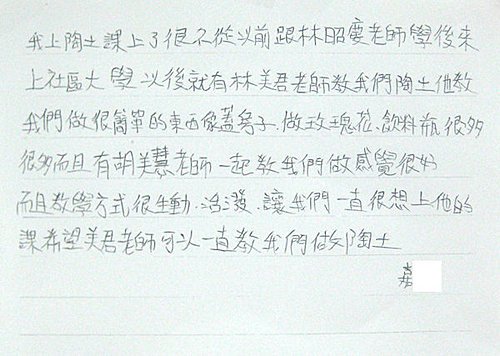 我上陶土課上了很久從以前跟林昭慶老師學後來
上社區大學以後就有林美君老師教我們陶土他教
我們做很簡單的東西像蓋房子.做玫瑰花.飲料瓶很多
很多而且有胡美慧老師一起教我們做感覺很好
而且教學方式很生動.活潑.讓我們一直很想上他的
課希望美君老師可以一直教我們做陶土